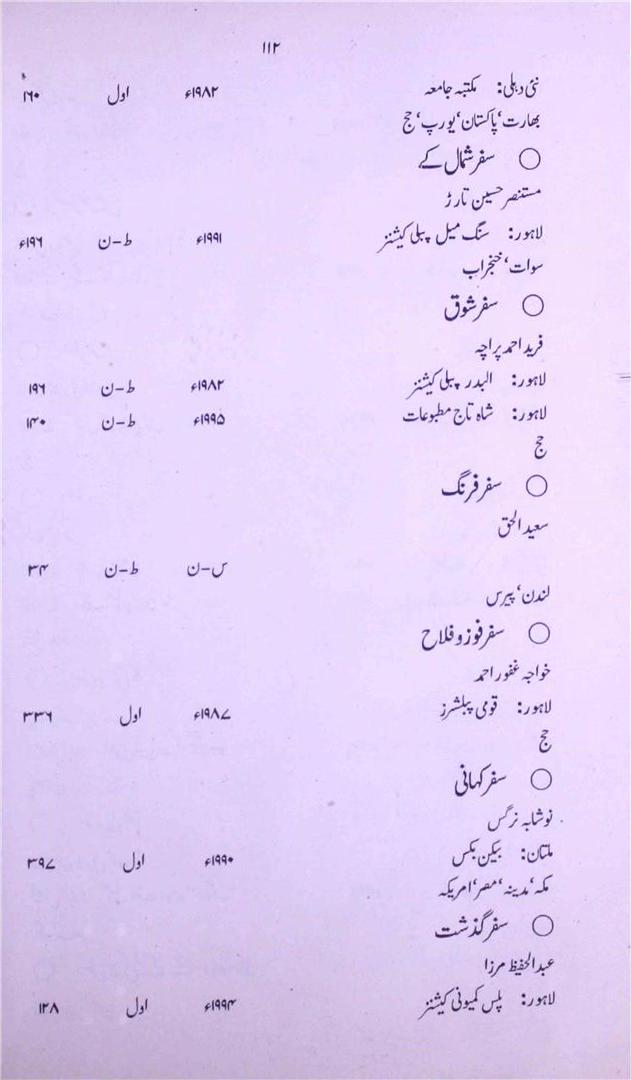 ۱۱۲
نئی دہلی: مکتبہ جامعہ ۱۹۸۲ء اول ۱۶۰
بھارت، پاکستان، یورپ، حج
○ سفر شمال کے
مستنصر حسین تارڑ
لاہور: سنگ میل پبلی کیشنز ۱۹۹۱ء ط-ن ۱۹۶ء
سوات، خنجراب
○ سفر شوق
فرید احمد پراچہ
لاہور: البدر پبلی کیشنز ۱۹۸۲ء ط-ن ۱۹۶
لاہور: شاہ تاج مطبوعات ۱۹۹۵ء ط-ن ۱۴۰
حج
○ سفر فرنگ
سعید الحق
س-ن ط-ن ۳۴
لندن، پیرس
○ سفر فوز و فلاح
خواجہ غفور احمد
لاہور: قومی پبلشرز ۱۹۸۷ء اول ۳۳۶
حج
○ سفر کہانی
نوشابہ نرگس
ملتان: بیکن بکس ۱۹۹۰ء اول ۳۹۷
مکہ، مدینہ، مصر، امریکہ
○ سفر گذشت
عبدالحفیظ مرزا
لاہور: پلس کمیونی کیشنز ۱۹۹۴ء اول ۱۲۸